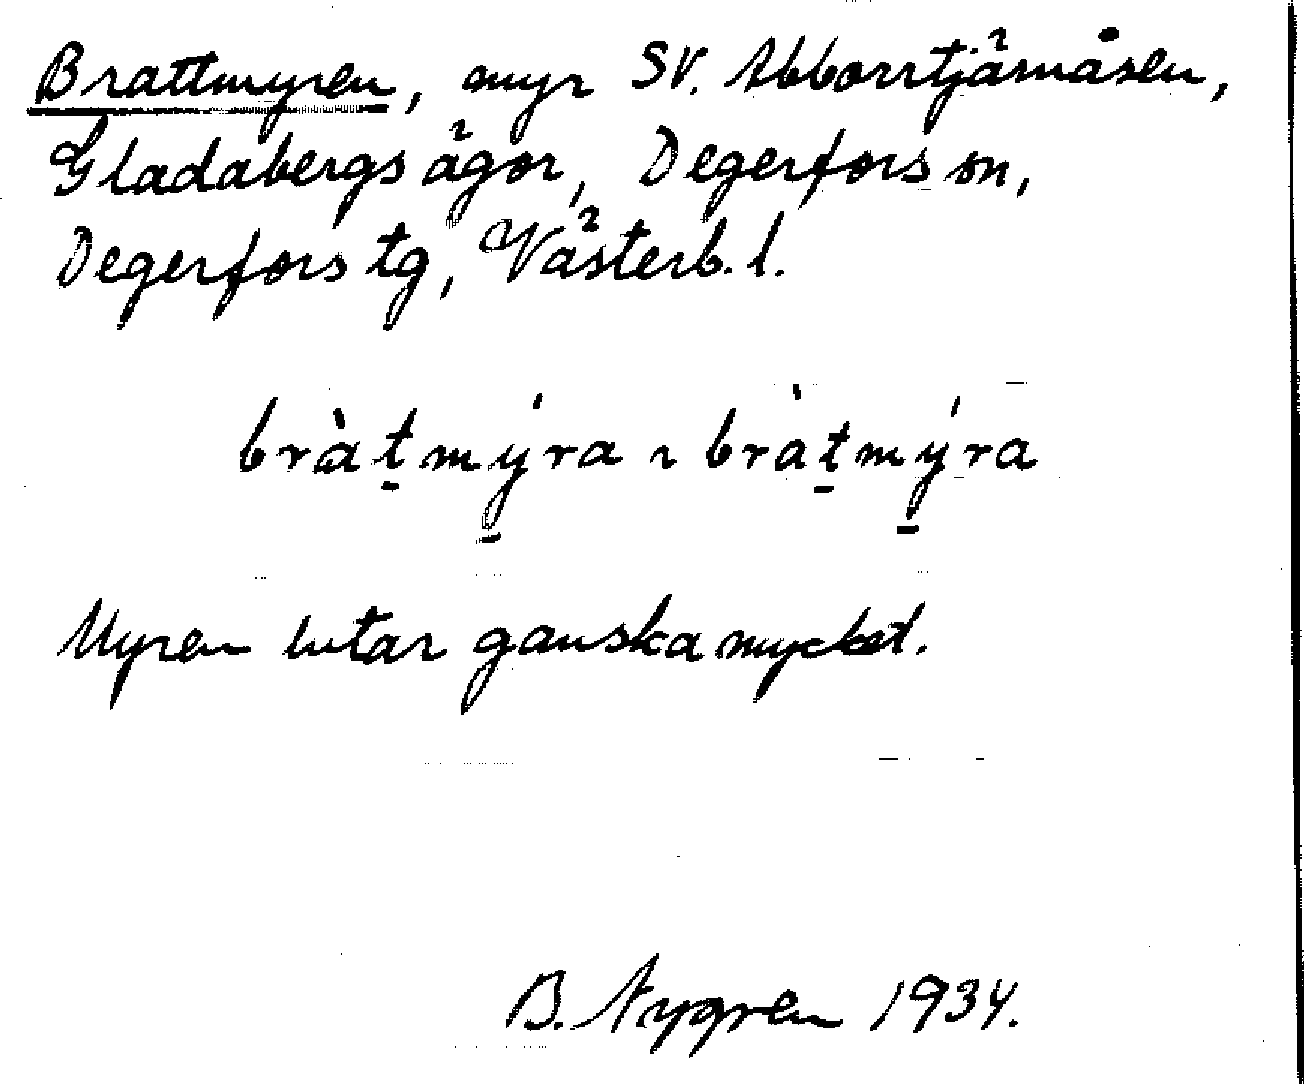 Brattmyren, myr SV. Abborrtjärnåsen,
Gladabergs ägor, Degerfors sn,
Degerfors tg, Västerb. l.
bràt̠mý̠ra ~ bràt̠mý̠ra
Myren lutar ganska mycket.
B. Nygren 1934.